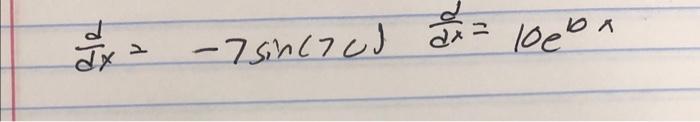 d/dx = -7sin(7c) d/dx = 10e^10x